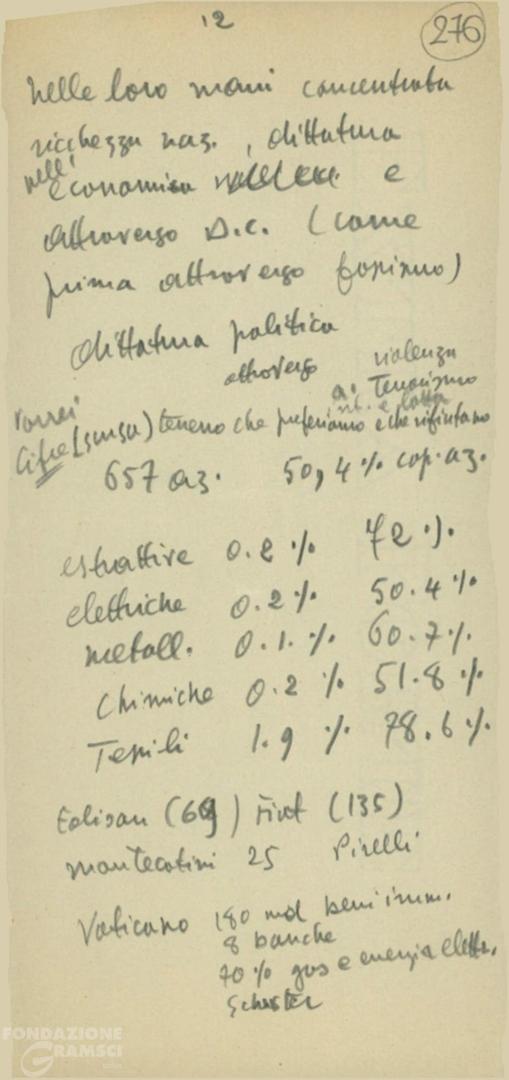 12
276
nelle loro mani concentrata
ricchezza naz., dittatura
nell'
economica e
attraverso D.C. (come
prima attraverso fascismo)
dittatura politica
attraverso violenza
a. Terrorismo
e lotta
vorrei
Cifre (scusa) terreno che preferiamo e che rifiutano
657 az. 50,4% cap. az.
estrattive 0.2% 72%.
elettriche 0.2% 50.4%
metall. 0.1.% 60.7%.
Chimiche 0.2% 51.8%
Tessili 1.9% 78.6%.
Edison (69) Fiat (135)
Montecatini 25 Pirelli
Vaticano 180 md beni imm.
8 banche
70% gas e energia elettr.
Schuster
FONDAZIONE
GRAMSCI